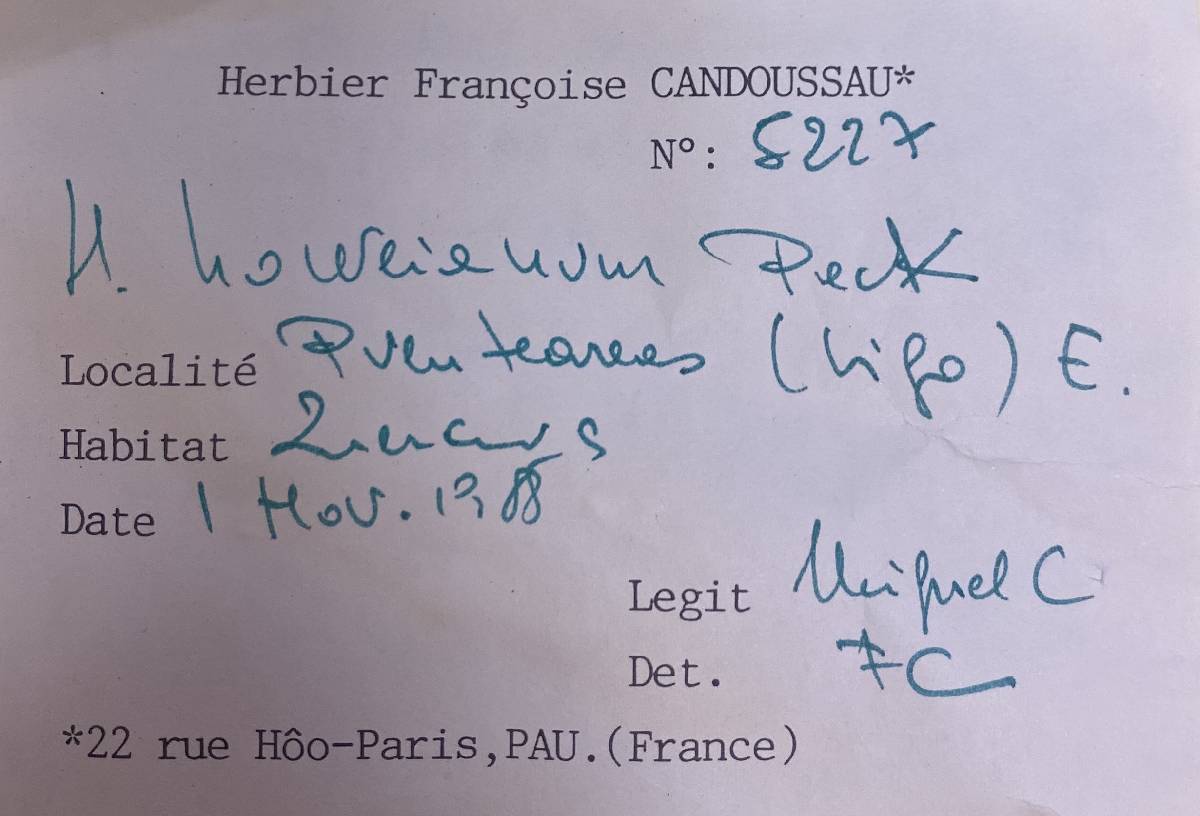 Herbier Françoise CANDOUSSAU*
N°: 5227
H. howeianum Peck
Localité Puenteareas (Vigo) E.
Habitat Quercus
Date 1 Nov. 1988
Legit Miguel C
Det. FC
*22 rue Hôo-Paris,PAU.(France)